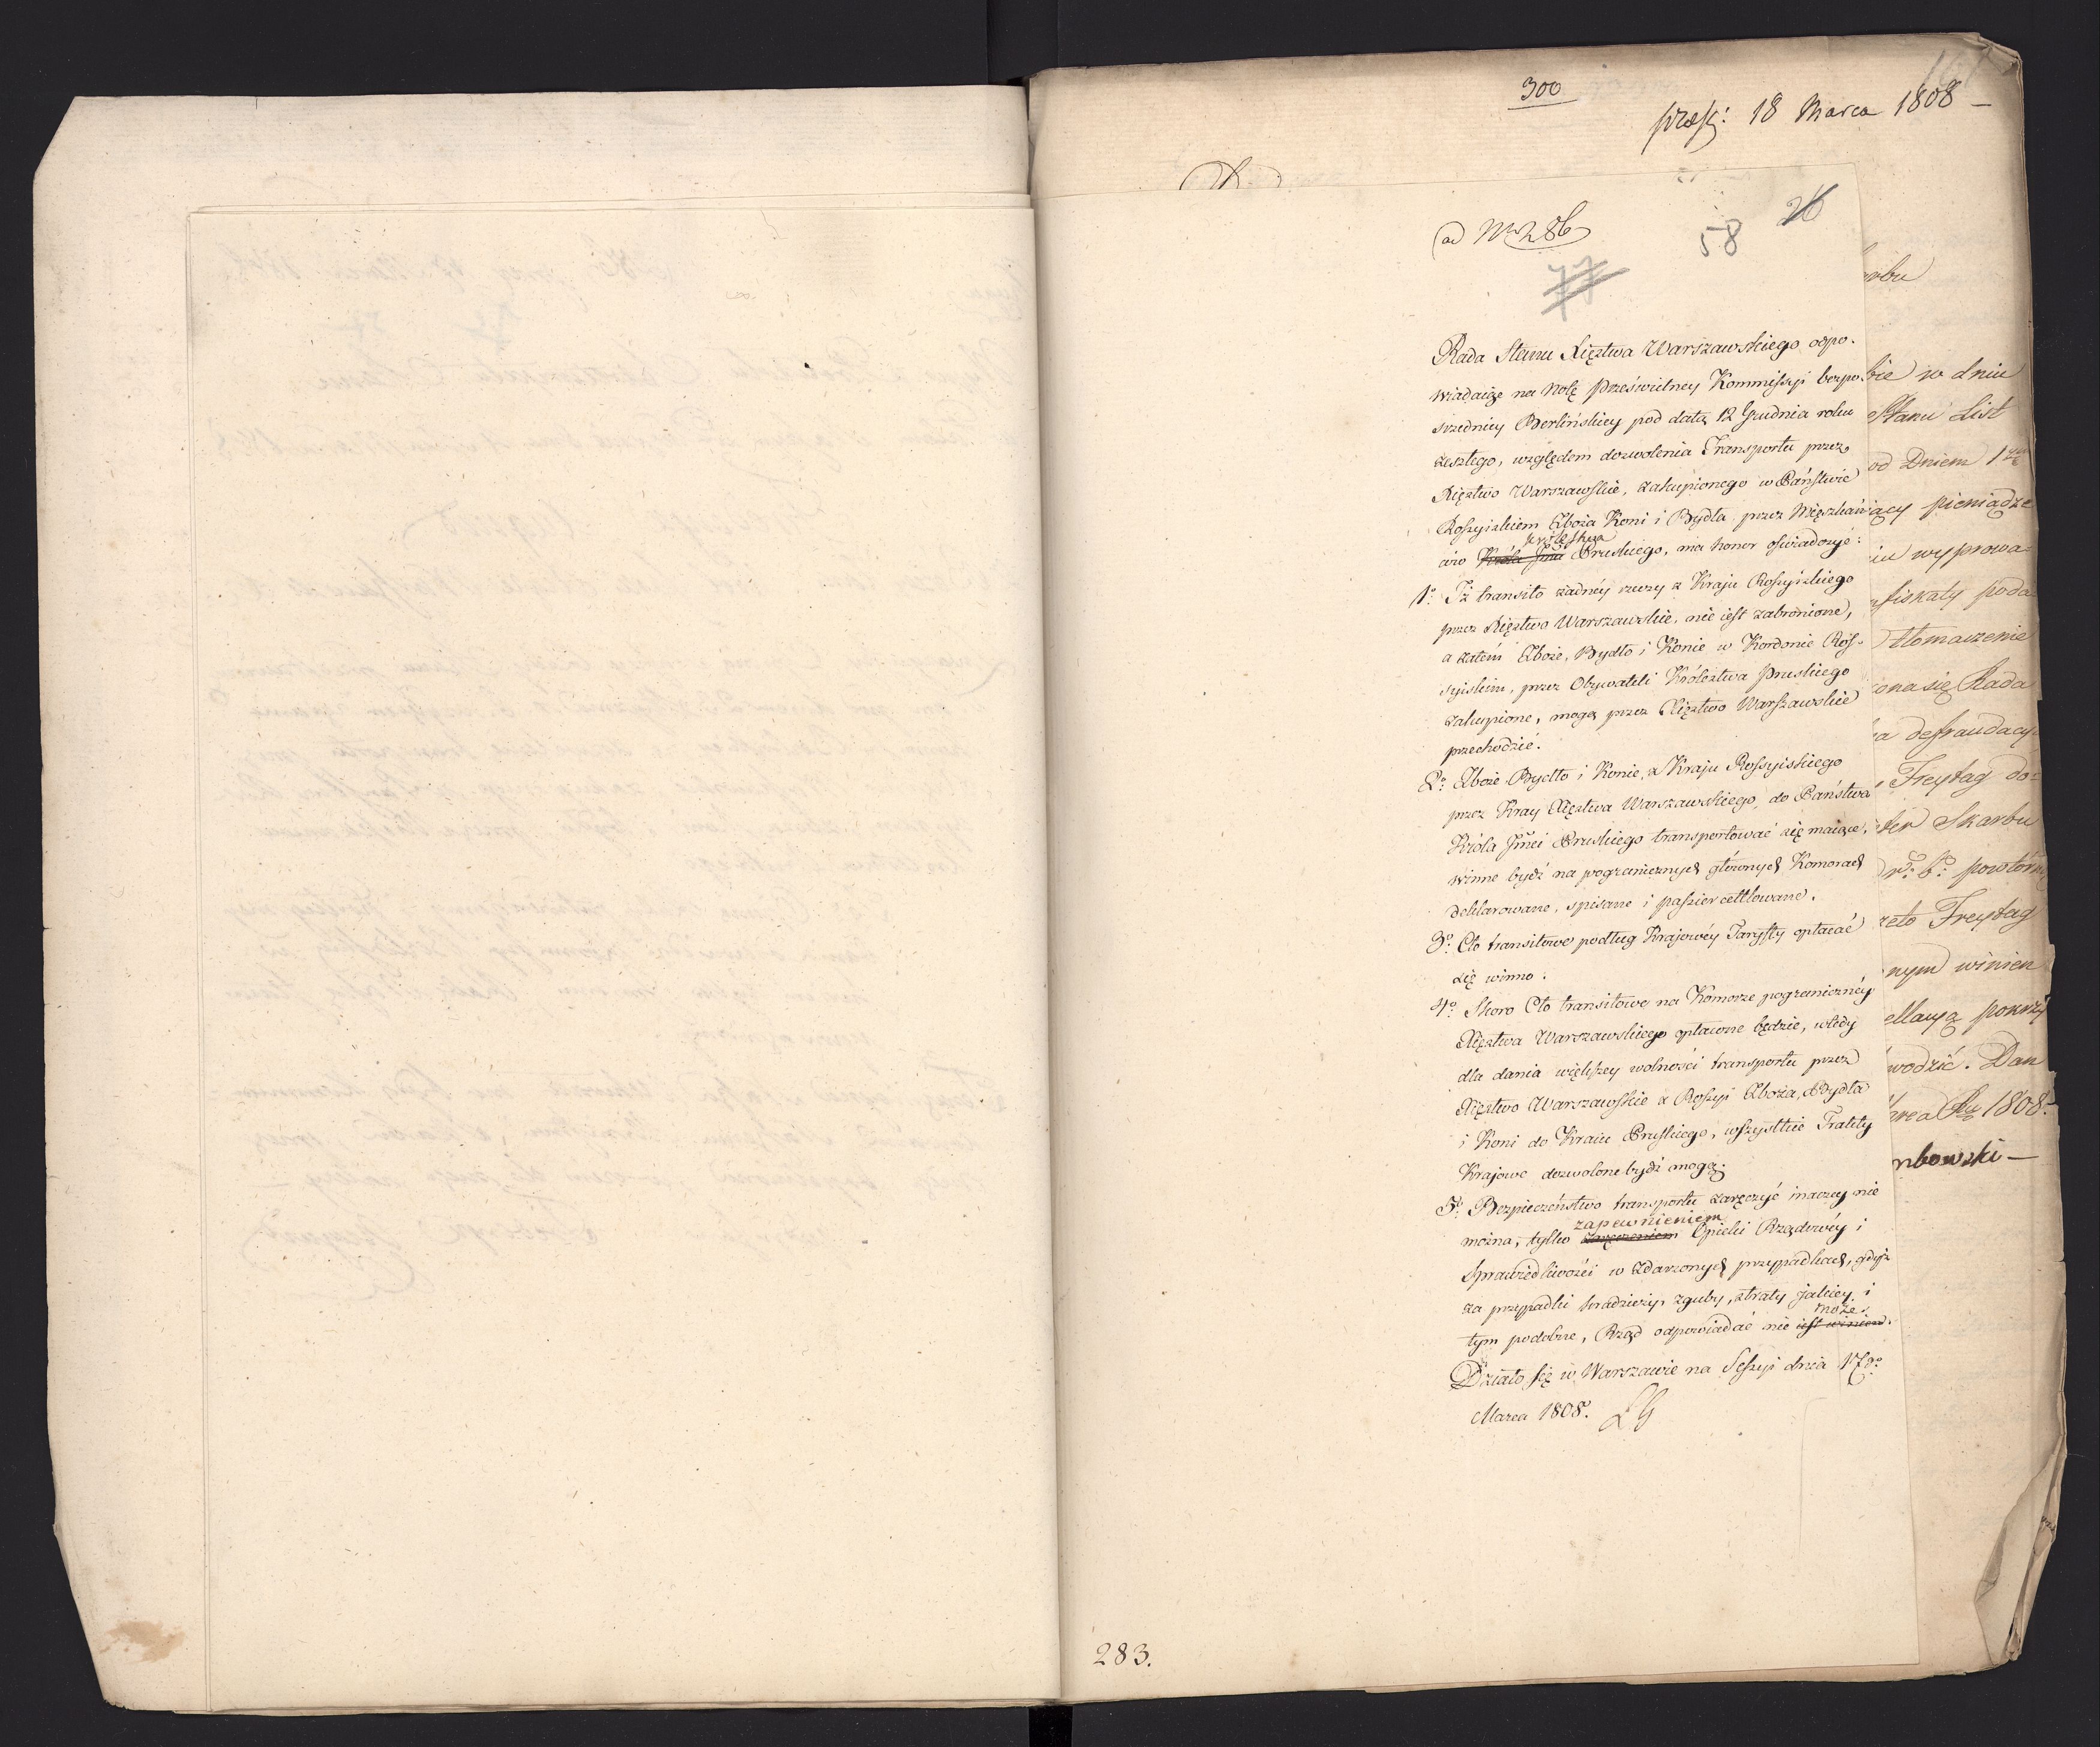 300
præs: 18 Marca 1808 —
ad Nro 286
58
26
77
Rada Stanu Xięztwa Warszawskiego odpo-
wiadaiąc na Notę Prześwietney Kommissyi bezpo-
srzedniey Berlińskiey pod datą 12 Grudnia roku
zeszłego, względem dozwolenia Transportu przez
Xięztwo Warszawskie, zakupionego w Państwie
Rossyiskiem Zboża Koni i Bydła przez Mięszkań-
ców Króla Jmci Królestwa Pruskiego, ma honor oświadczyć:
1o: Iż transito żadnéy rzeczy z Kraju Rossyiskiego
przez Xięztwo Warszawskie, nie iest zabronione,
a zatém Zboże, Bydło i Konie w Kordonie Ros-
syiskim, przez Obywateli Królestwa Pruskiego
zakupione, mogą przez Xięztwo Warszawskie
przechodzić.
2o: Zboże Bydło i Konie, z Kraju Rossyiskiego
przez Kray Xięztwa Warszawskiego, do Państwa
Króla Jmci Pruskiego transportować się maiące,
winne bydź na pogranicznych głównych Komorach
deklarowane, spisane i passiercetlowane.
3o: Cło transitowe podług Krajowéy Taryffy opłacać
się winno.
4o: Skoro Cło transitowe na Komorze pograniczney
Xięztwa Warszawskiego opłacone będzie, wtedy
dla dania większey wolności transportu przez
Xięztwo Warszawskie z Rossyi Zboża, Bydła
i Koni do Kraiu Pruskiego, wszystkie Trakty
Krajowe dozwolone bydź mogą.
5o: Bezpieczeństwo transportu zaręczyć inaczey nie
można, tylko zaręczeniem zapewnieniem Opieki Rządowéy i
Sprawiedliwości w zdarzonych przypadkach, gdyż
za przypadki kradzieży, zguby, straty jakiey, i
tym podobne, Rząd odpowiadać nie iest winien może.
Działo się w Warszawie na Sessyi dnia 17go
Marca 1808.
283.
rbu
bie w dniu
Stanu List
od Dniem 1
ący pieniądze
iu wyprowa-
nfiskaty poda-
tłomaczenie
ona się Rada
a defraudacy
Freytag do-
ster Skarbu
powtórn
zeto Freytag
nym winien
ellaryą pokrzy
wodzić. Dan
arca 1808.
mbowski —